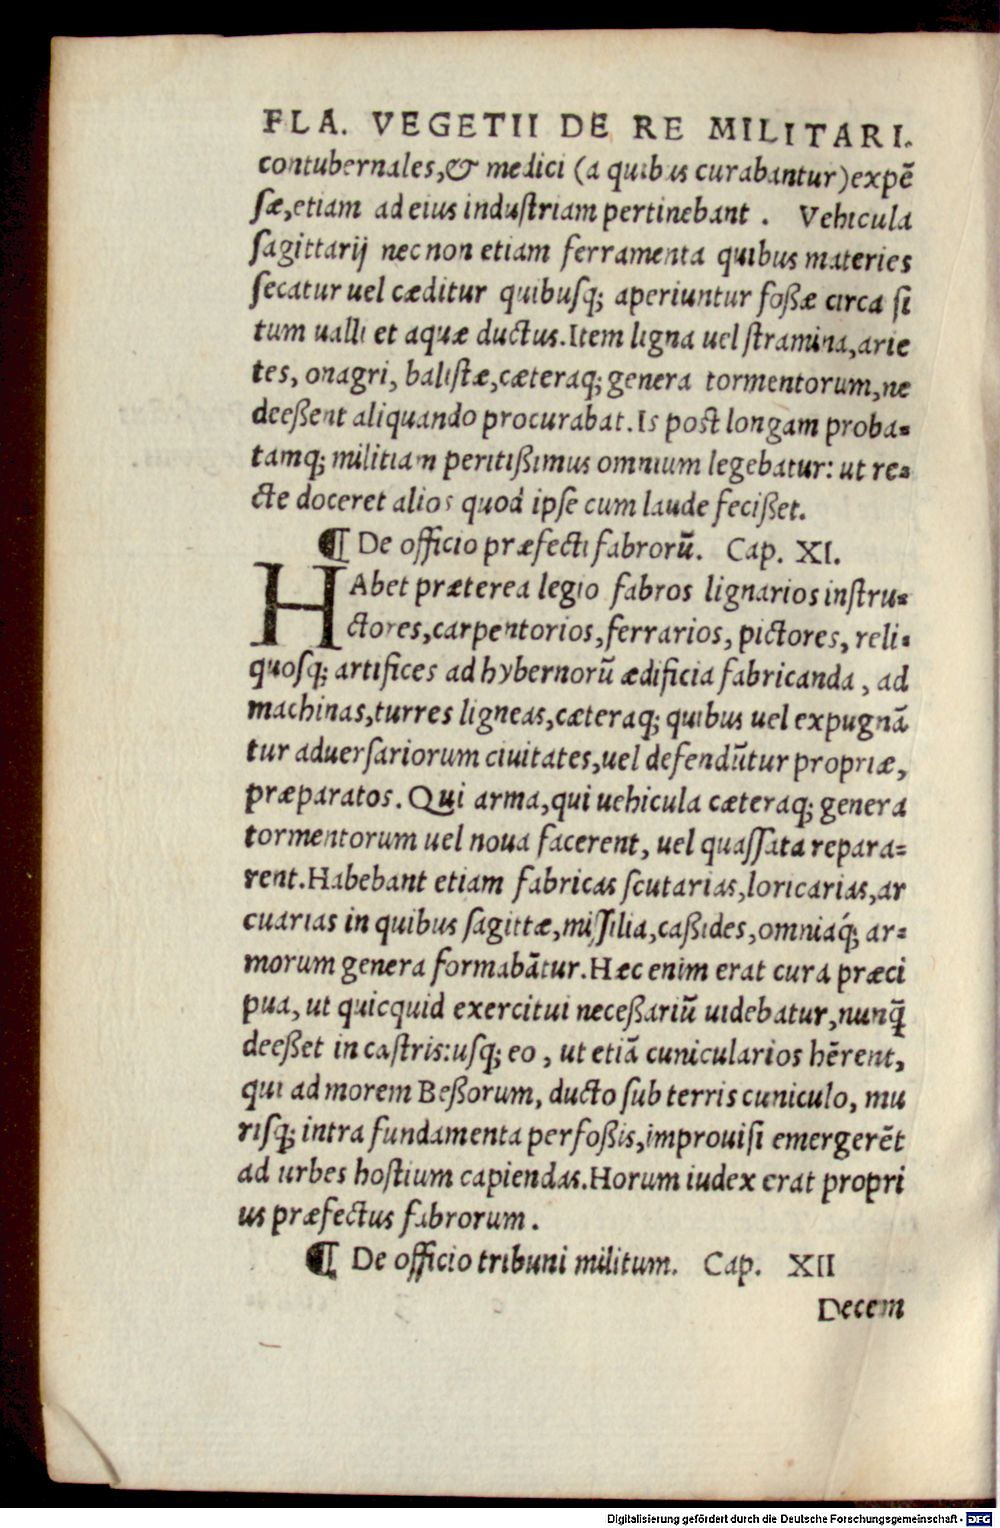 FLA. VEGETII DE RE MILITARI.
contubernales,& medici (a quibus curabantur) expẽ
ſæ,etiam ad eius induſtriam pertinebant . Vehicula
ſagittarij nec non etiam ferramenta quibus materies
ſecatur uel cæditur quibuſq; aperiuntur foßæ circa ſi
tum ualli et aquæ ductus.Item ligna uel ſtramina,arie
tes, onagri, baliſtæ,cæteraq; genera tormentorum,ne
deeßent aliquando procurabat.Is poſt longam proba=
tamq; militiam peritißimus omnium legebatur: ut re=
cte doceret alios quod ipſe cum laude fecißet.
¶ De officio præfecti fabrorũ. Cap. XI.
HAbet præterea legio fabros lignarios inſtru=
ctores,carpentorios,ferrarios, pictores, reli=
quoſq; artifices ad hybernorũ ædificia fabricanda , ad
machinas,turres ligneas,cæteraq; quibus uel expugnã
tur aduerſariorum ciuitates,uel defendũtur propriæ,
præparatos. Qui arma,qui uehicula cæteraq; genera
tormentorum uel noua facerent, uel quaſſata repara=
rent.Habebant etiam fabricas ſcutarias,loricarias,ar
cuarias in quibus ſagittæ,miſſilia,caßides,omniaq́; ar=
morum genera formabãtur.Hæc enim erat cura præci
pua, ut quicquid exercitui neceßariũ uidebatur,nunq̃
deeßet in caſtris:uſq; eo , ut etiã cunicularios hẽrent,
qui ad morem Beßorum, ducto ſub terris cuniculo, mu
riſq; intra fundamenta perfoßis,improuiſi emergerẽt
ad urbes hoſtium capiendas.Horum iudex erat propri
us præfectus fabrorum .
¶ De officio tribuni militum. Cap. XII
Decem
Digitalisierung gefördert durch die Deutsche Forschungsgemeinschaft - DFG